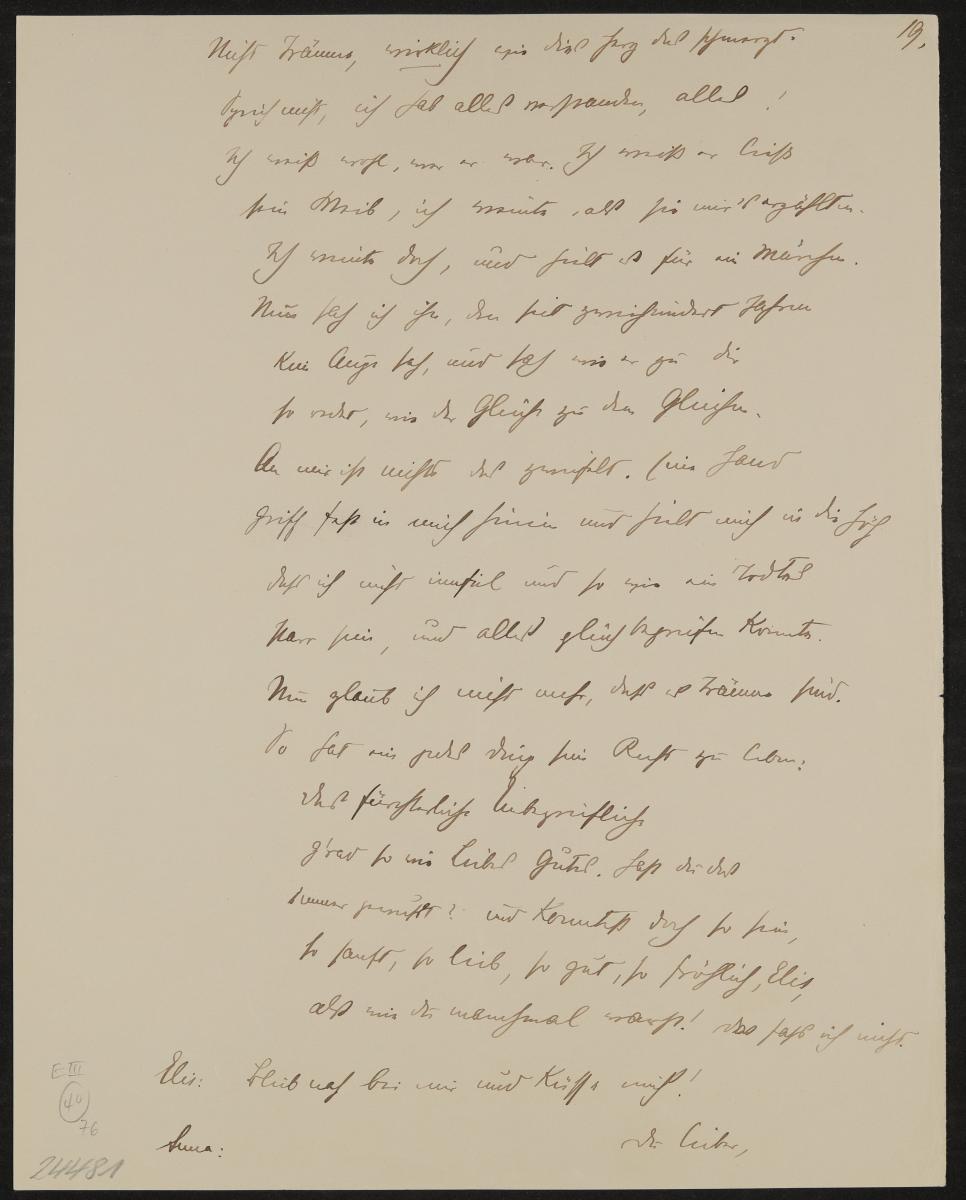 19.
Nicht Träume, wirklich wie dies Herz das schmerzt.
Sprich nicht, ich hab alles verstanden, alles!
Ich weiß wohl, wer er war. Ich weiß er ließ
sein Weib, ich weinte, als sie mir's erzählten.
Ich weinte doch, und hielt es für ein Märchen.
Nun sah ich ihn, den seit zweihundert Jahren
kein Auge sah, und sah wie er zu dir
so redet, wie der Gleiche zu dem Gleichen.
An mir ist nichts das zweifelt. Eine Hand
griff fest in mich hinein und hielt mich in die Höh
daß ich nicht umfiel und so wie ein Todtes
starr sein, und alles gleich begreifen konnte.
Nun glaub ich nicht mehr, daß es Träume sind.
So hat ein jedes Ding sein Recht zu leben:
das fürchterliche Unbegreifliche
g'rad so wie liebes Gutes. Hast du das
immer gewußt? und konntest doch so sein,
so sanft, so lieb, so gut, so fröhlich, Elis,
als wie du manchmal warst! Das faß ich nicht.
Elis: Bleib nah bei mir und küsse mich!
Anna: Du lieber,
E III
40
76
24481